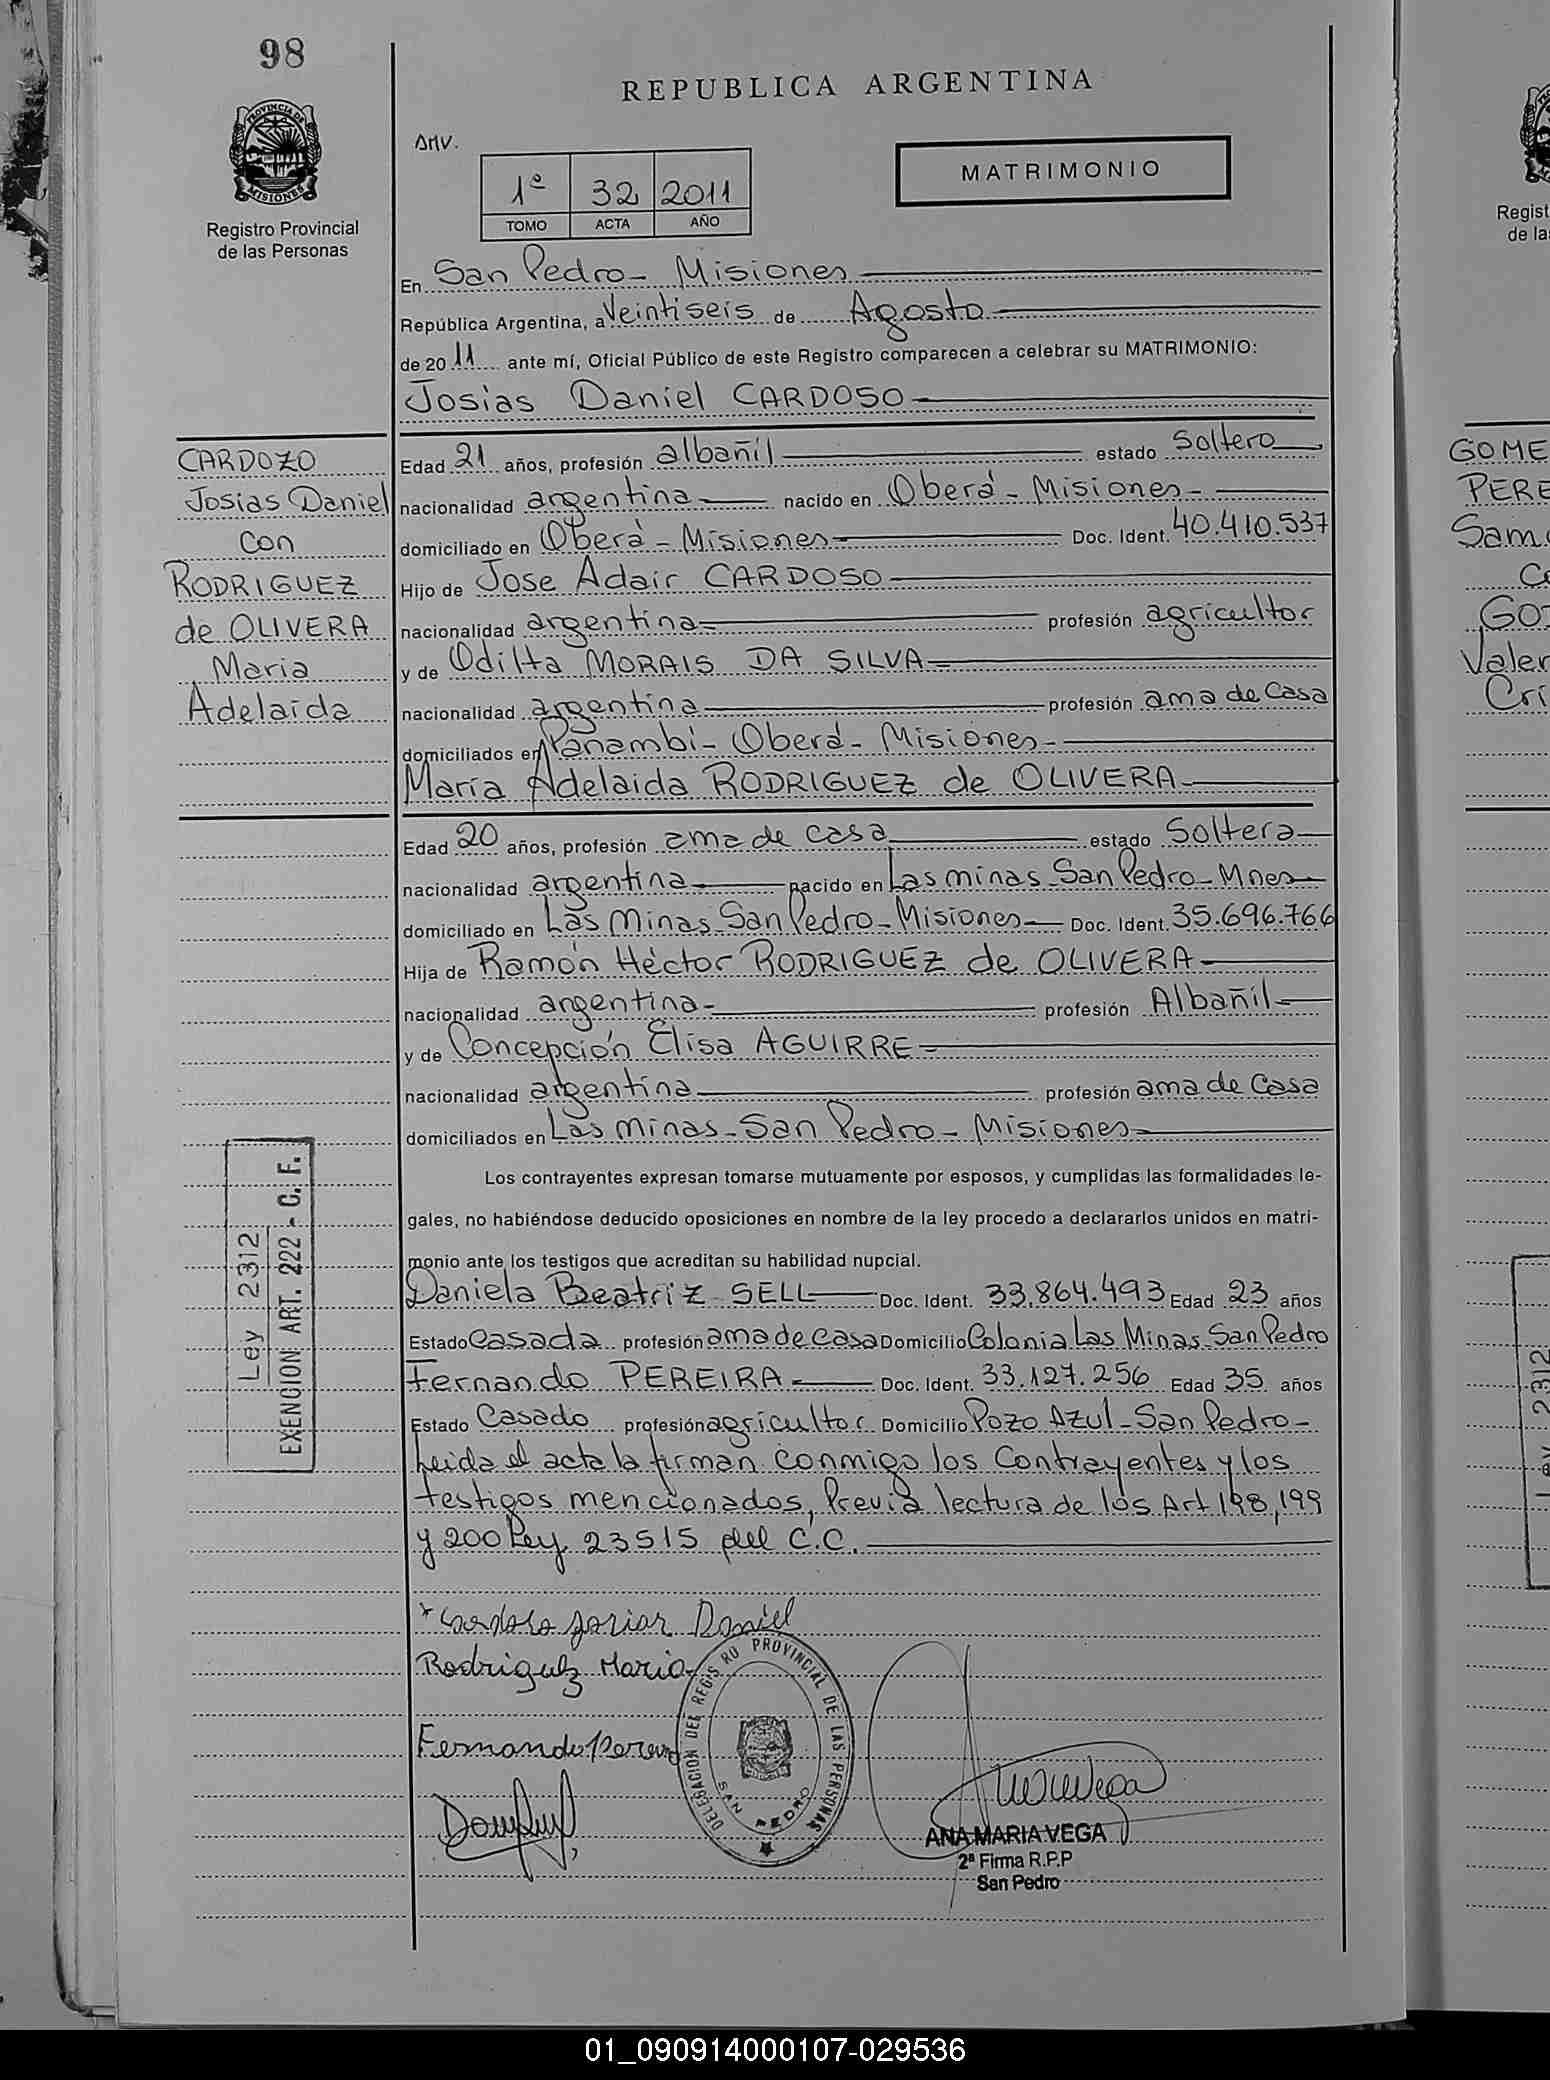 98
REPUBLICA ARGENTINA
PROVINCIA DE
MISIONES
Registro Provincial
de las Personas
MATRIMONIO
1º 32 2011
TOMO ACTA AÑO
En San Pedro - Misiones
República Argentina, a Veintiseis de Agosto
de 20 11 ante mí, Oficial Público de este Registro comparecen a celebrar su MATRIMONIO:
Josias Daniel CARDOSO
CARDOZO
Josias Daniel
con
RODRIGUEZ
de OLIVERA
Maria
Adelaida
Edad 21 años, profesión albañil estado Soltero
nacionalidad argentina nacido en Oberá - Misiones -
domiciliado en Oberá - Misiones Doc. Ident. 40.410.537
Hijo de Jose Adair CARDOSO
nacionalidad argentina profesión agricultor
y de Odilta MORAIS DA SILVA
nacionalidad argentina profesión ama de Casa
domiciliados en Panambí - Oberá - Misiones -
María Adelaida RODRIGUEZ de OLIVERA
Edad 20 años, profesión ama de casa estado Soltera
nacionalidad argentina nacido en Las minas - San Pedro - Mnes
domiciliado en Las Minas - San Pedro - Misiones Doc. Ident. 35.696.766
Hija de Ramón Héctor RODRIGUEZ de OLIVERA
nacionalidad argentina - profesión Albañil
y de Concepción Elisa AGUIRRE
nacionalidad argentina profesión ama de Casa
domiciliados en Las minas - San Pedro - Misiones
Los contrayentes expresan tomarse mutuamente por esposos, y cumplidas las formalidades le-
gales, no habiéndose deducido oposiciones en nombre de la ley procedo a declararlos unidos en matri-
monio ante los testigos que acreditan su habilidad nupcial.
Daniela Beatriz SELL Doc. Ident. 33.864.493 Edad 23 años
Estado Casada profesión ama de casa Domicilio Colonia Las Minas - San Pedro
Fernando PEREIRA Doc. Ident. 33.127.256 Edad 35 años
Estado Casado profesión agricultor Domicilio Pozo Azul - San Pedro -
Leida el acta la firman conmigo los Contrayentes y los
testigos mencionados, Previa lectura de los Art 198, 199
y 200 Ley 23515 del C.C.
Ley 2312
EXENCION ART. 222 - C. F.
Daniel
Rodriguez Maria
Fernando Pereira
DELEGACION DEL REGISTRO PROVINCIAL DE LAS PERSONAS
SAN PEDRO
ANA MARIA VEGA
2ª Firma R.P.P
San Pedro
Regist
de la
GOME
PERE
Sam
Co
GO
Valer
Cri
2312
01_090914000107-029536